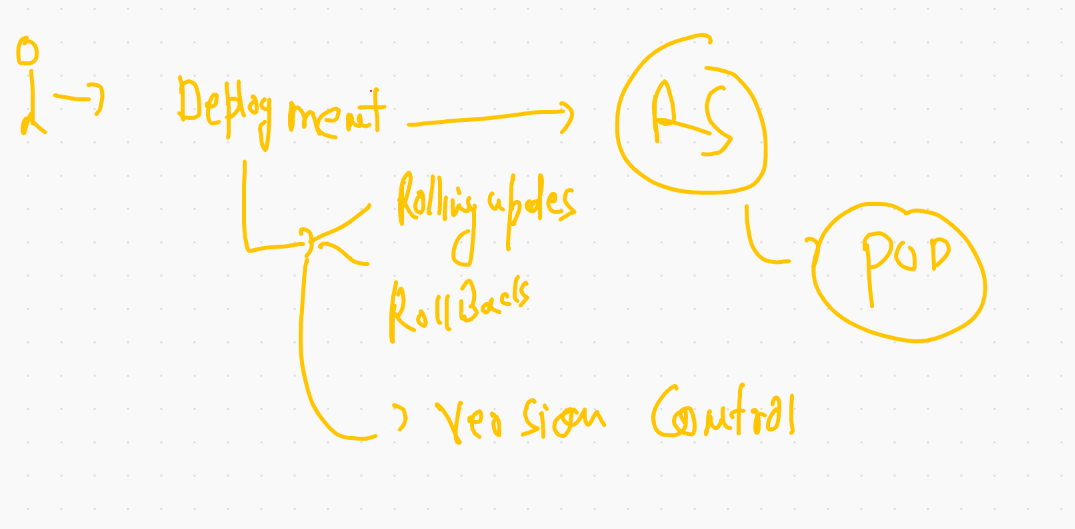 Deployment
RS
Rolling updes
POD
RollBacks
Version Control